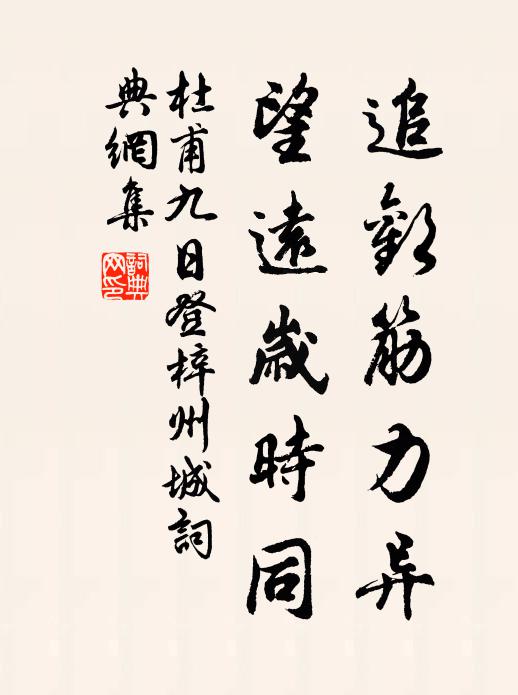 追歡筋力异
望遠歲時同
杜甫九日登梓州城詞
典網集
詞典
网印